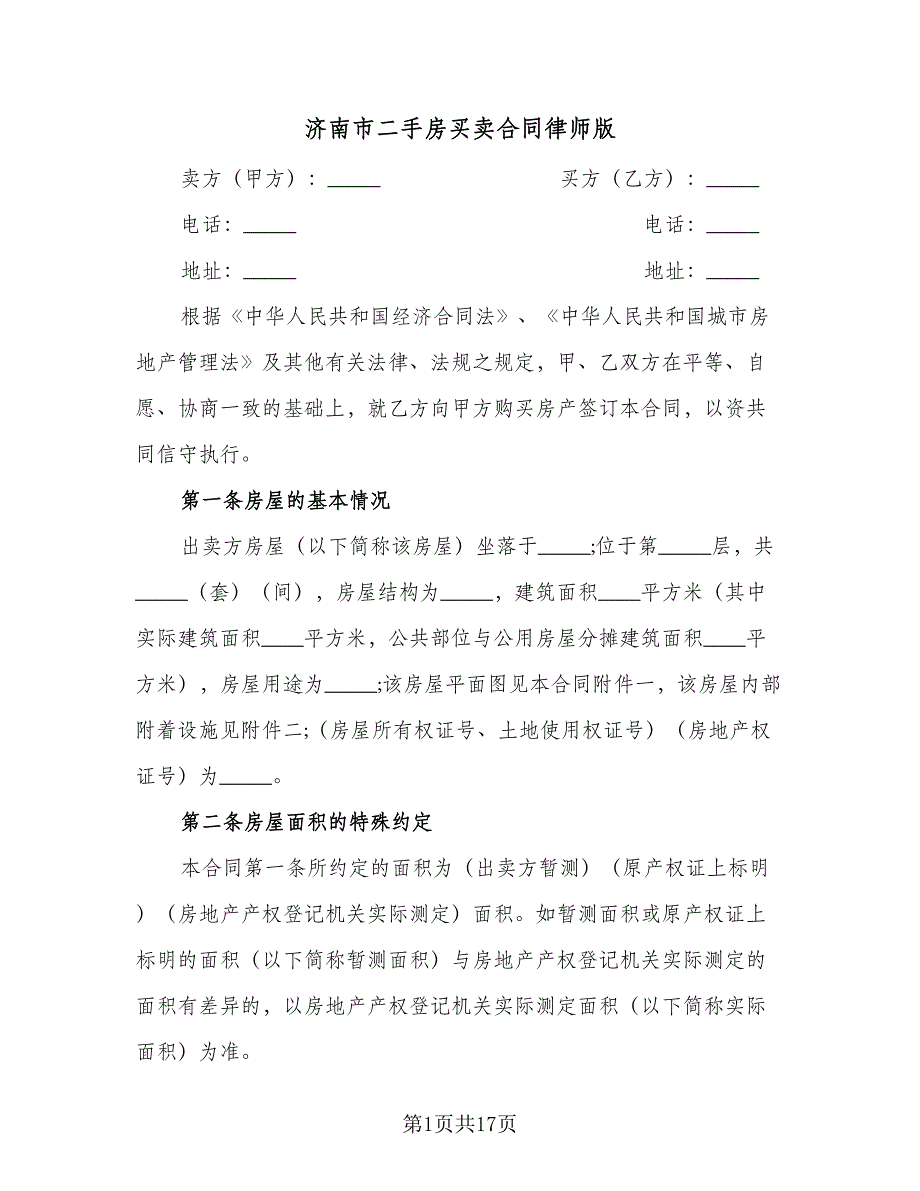 济南市二手房买卖合同律师版
卖方（甲方）：_____ 买方（乙方）：_____
电话：_____ 电话：_____
地址：_____ 地址：_____
根据《中华人民共和国经济合同法》、《中华人民共和国城市房
地产管理法》及其他有关法律、法规之规定，甲、乙双方在平等、自
愿、协商一致的基础上，就乙方向甲方购买房产签订本合同，以资共
同信守执行。
第一条房屋的基本情况
出卖方房屋（以下简称该房屋）坐落于_____;位于第_____层，共
_____（套）（间），房屋结构为_____，建筑面积____平方米（其中
实际建筑面积____平方米，公共部位与公用房屋分摊建筑面积____平
方米），房屋用途为_____;该房屋平面图见本合同附件一，该房屋内部
附着设施见附件二;（房屋所有权证号、土地使用权证号）（房地产权
证号）为_____。
第二条房屋面积的特殊约定
本合同第一条所约定的面积为（出卖方暂测）（原产权证上标明
）（房地产产权登记机关实际测定）面积。如暂测面积或原产权证上
标明的面积（以下简称暂测面积）与房地产产权登记机关实际测定的
面积有差异的，以房地产产权登记机关实际测定面积（以下简称实际
面积）为准。
第1页共17页